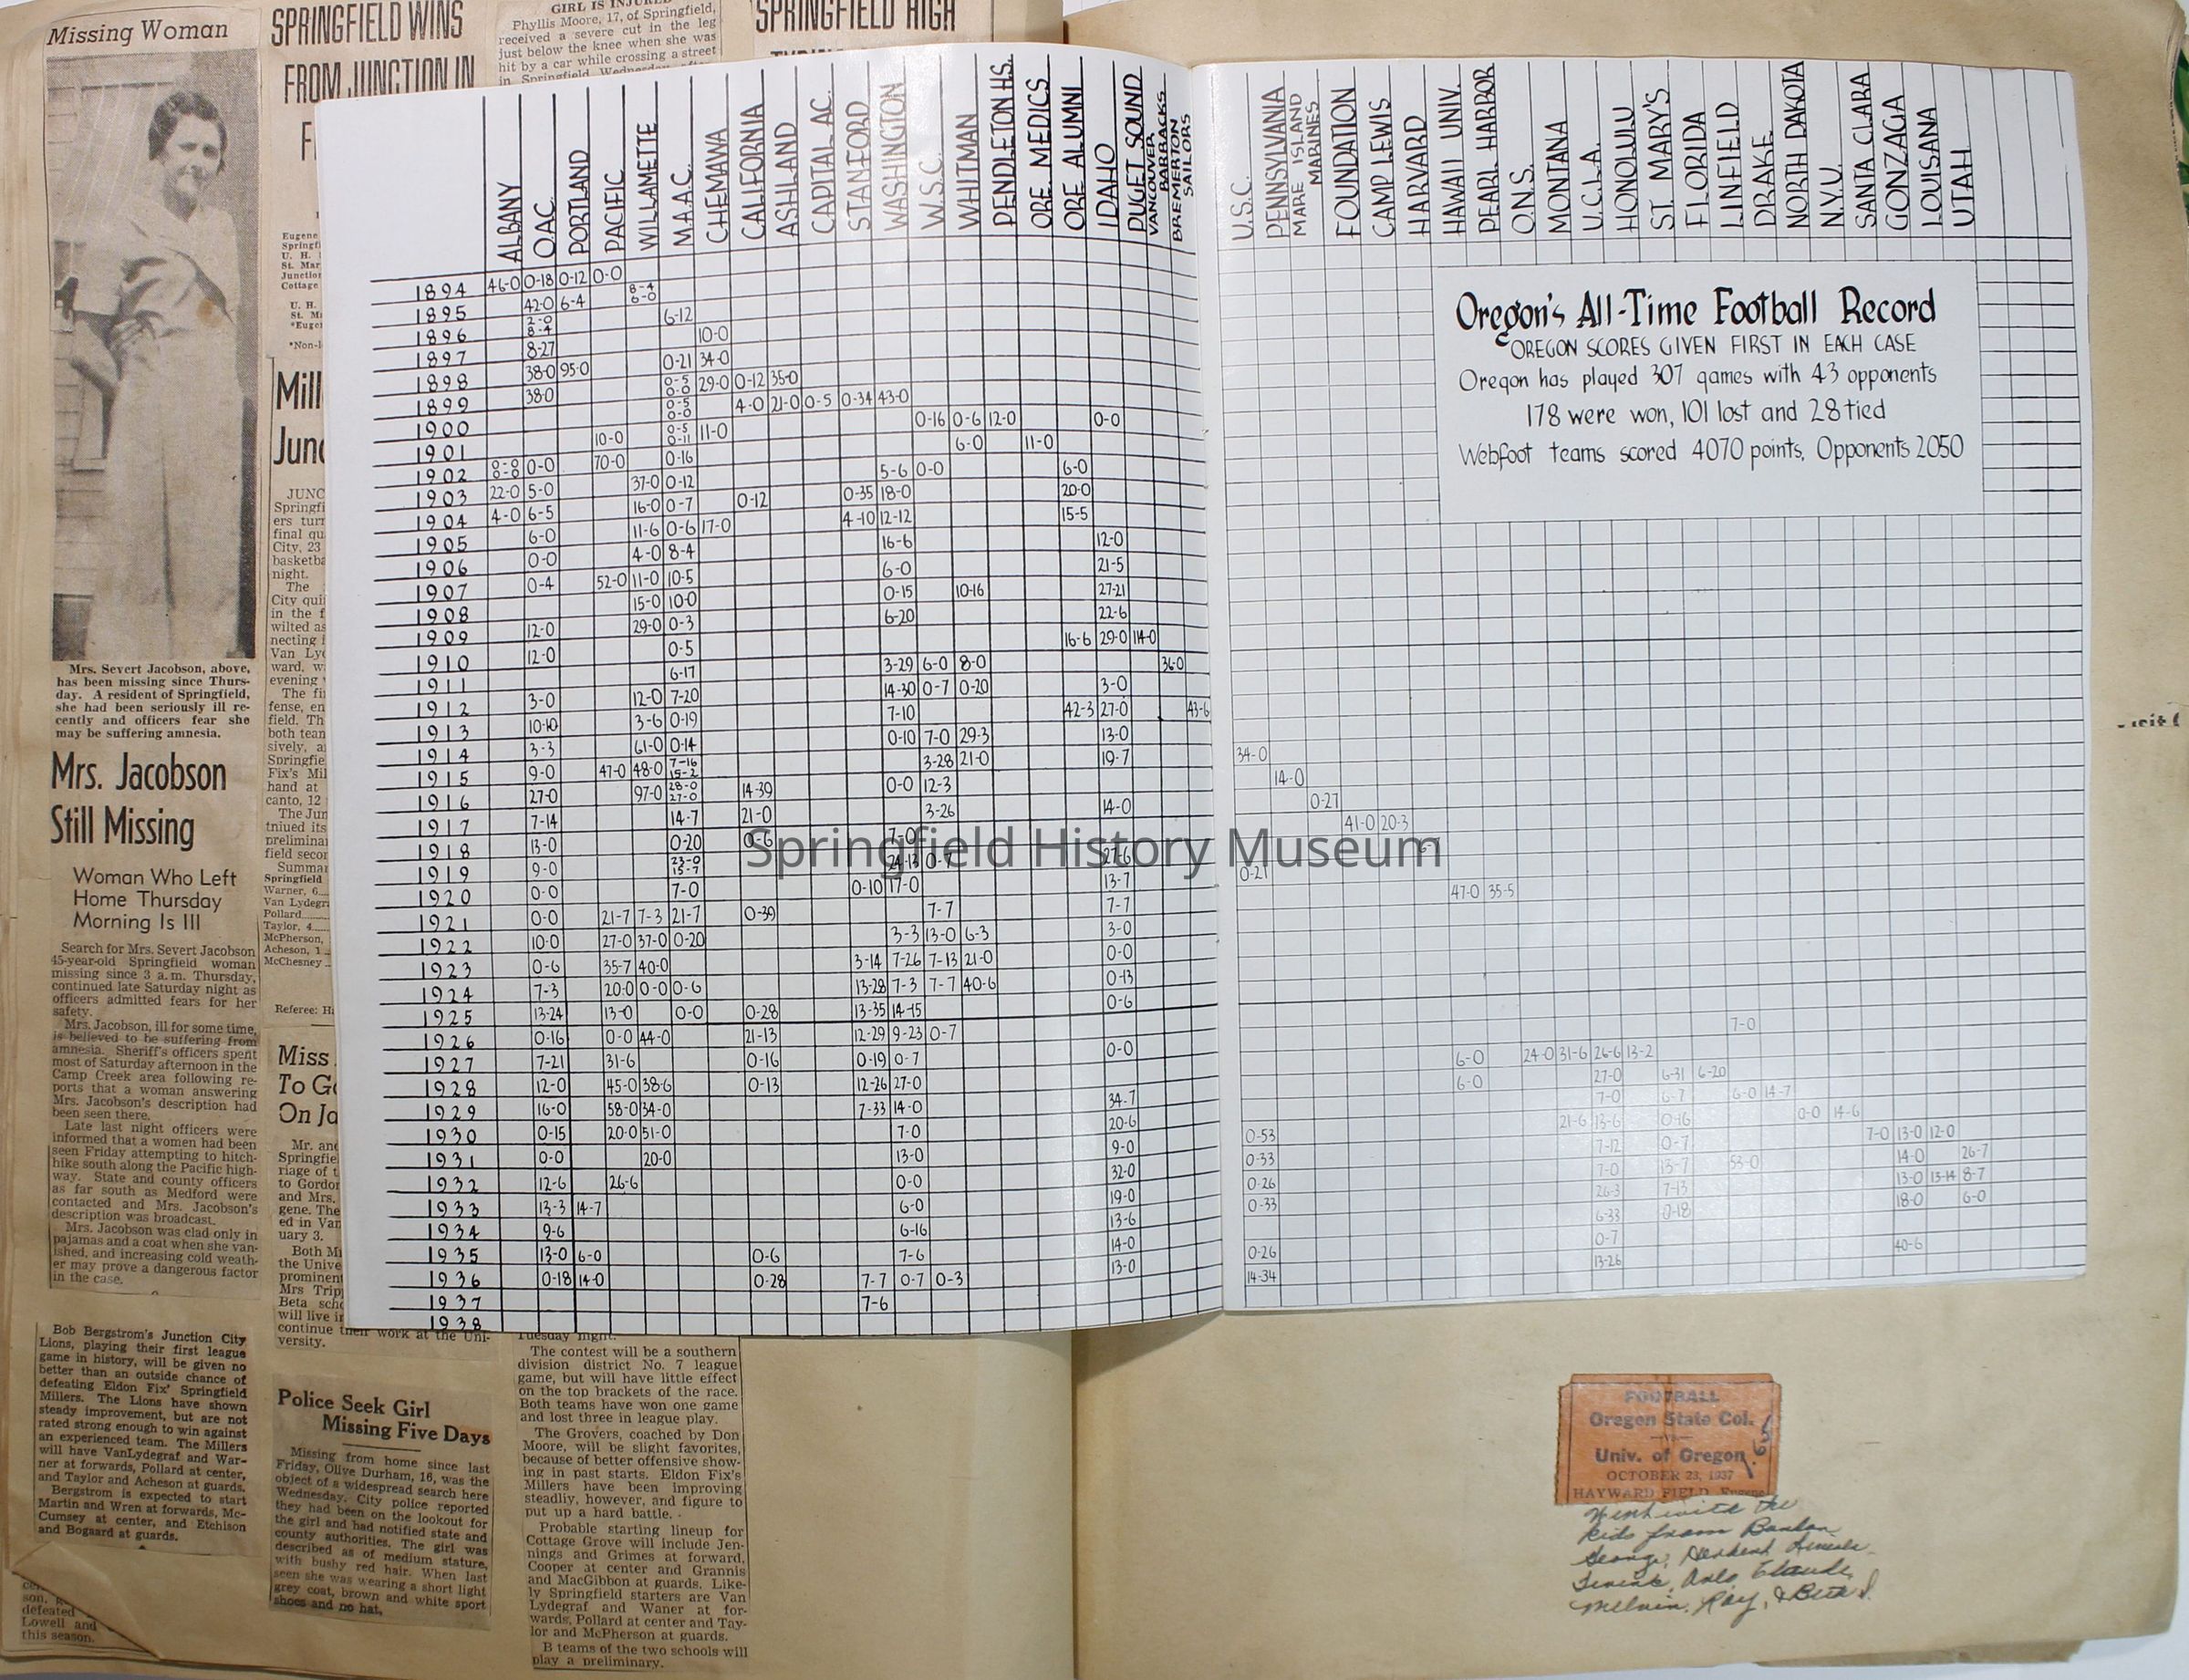 Missing Woman
Mrs. Severt Jacobson, above,
has been missing since Thurs-
day. A resident of Springfield,
she had been seriously ill re-
cently and officers fear she
may be suffering amnesia.
Mrs. Jacobson
Still Missing
Woman Who Left
Home Thursday
Morning Is Ill
Search for Mrs. Severt Jacobson
45-year-old Springfield woman
missing since 3 a. m. Thursday,
continued late Saturday night as
officers admitted fears for her
safety.
Mrs. Jacobson, ill for some time,
is believed to be suffering from
amnesia. Sheriff's officers spent
most of Saturday afternoon in the
Camp Creek area following re-
ports that a woman answering
Mrs. Jacobson's description had
been seen there.
Late last night officers were
informed that a women had been
seen Friday attempting to hitch-
hike south along the Pacific high-
way. State and county officers
as far south as Medford were
contacted and Mrs. Jacobson's
description was broadcast.
Mrs. Jacobson was clad only in
pajamas and a coat when she van-
ished, and increasing cold weath-
er may prove a dangerous factor
in the case.
Bob Bergstrom's Junction City
Lions, playing their first league
game in history, will be given no
better than an outside chance of
defeating Eldon Fix' Springfield
Millers. The Lions have shown
steady improvement, but are not
rated strong enough to win against
an experienced team. The Millers
will have VanLydegraf and War-
ner at forwards, Pollard at center,
and Taylor and Acheson at guards.
Bergstrom is expected to start
Martin and Wren at forwards, Mc-
Cumsey at center, and Etchison
and Bogaard at guards.
defeated
Lowell and
this season.
SPRINGFIELD WINS
FROM JUNCTION IN
GIRL IS INJURED
Phyllis Moore, 17, of Springfield,
received a severe cut in the leg
just below the knee when she was
hit by a car while crossing a street
in Springfield Wednesday
SPRINGFIELD HIGH
Eugene
U. H.
St. Mar
Cottage
U. H.
*Non-l
Mill
Junc
JUNC
Springfi
ers turn
final qu
City, 23
basketba
night.
The
City qui
in the f
wilted as
necting f
Van Lyd
ward, w
evening
The fi
fense, en
field. Th
both tean
sively, a
Springfie
Fix's Mil
hand at
canto, 12
The Jun
tniued its
prelimina
field secon
Summar
Springfield
Warner, 6
Van Lydegr
Pollard
Taylor, 4
McPherson,
Acheson, 1
McChesney
Referee: H
Miss
To G
On Ja
Mr. and
Springfie
riage of t
to Gordon
and Mrs.
gene. The
ed in Van
uary 3.
Both Mi
the Unive
prominent
Mrs Trip
Beta sch
will live i
continue their work at the Uni-
versity.
Police Seek Girl
Missing Five Days
Missing from home since last
Friday, Olive Durham, 16, was the
object of a widespread search here
Wednesday. City police reported
they had been on the lookout for
the girl and had notified state and
county authorities. The girl was
described as of medium stature,
with bushy red hair. When last
seen she was wearing a short light
grey coat, brown and white sport
shoes and no hat.
Tuesday night.
The contest will be a southern
division district No. 7 league
game, but will have little effect
on the top brackets of the race.
Both teams have won one game
and lost three in league play.
The Grovers, coached by Don
Moore, will be slight favorites,
because of better offensive show-
ing in past starts. Eldon Fix's
Millers have been improving
steadliy, however, and figure to
put up a hard battle.
Probable starting lineup for
Cottage Grove will include Jen-
nings and Grimes at forward,
Cooper at center and Grannis
and MacGibbon at guards. Like-
ly Springfield starters are Van
Lydegraf and Waner at for-
wards, Pollard at center and Tay-
lor and McPherson at guards.
B teams of the two schools will
play a preliminary.
ALBANY
O.A.C.
PORTLAND
PACIFIC
WILLAMETTE
M.A.A.C.
CHEMAWA
CALIFORNIA
ASHLAND
CAPITAL A.C.
STANFORD
WASHINGTON
W.S.C.
WHITMAN
PENDLETON H.S.
ORE. MEDICS
ORE. ALUMNI
IDAHO
PUGET SOUND
VANCOUVER BARRACKS
BREMERTON SAILORS
1894 46-0 0-18 0-12 0-0
1895 42-0 6-4 8-4 6-0
1896 2-0 8-4 6-12
1897 8-27 10-0
1898 38-0 95-0 0-21 34-0
1899 38-0 0-5 0-0 29-0 0-12 35-0
1900 0-5 0-0 4-0 21-0 0-5 0-34 43-0
1901 10-0 0-5 0-11 11-0 0-16 0-6 12-0 0-0
1902 0-0 0-0 0-0 70-0 0-16 6-0 11-0
1903 22-0 5-0 37-0 0-12 5-6 0-0 6-0
1904 4-0 6-5 16-0 0-7 0-12 0-35 18-0 20-0
1905 6-0 11-6 0-6 17-0 4-10 12-12 15-5
1906 0-0 4-0 8-4 16-6 12-0
1907 0-4 52-0 11-0 10-5 6-0 21-5
1908 15-0 10-0 0-15 10-16 27-21
1909 12-0 29-0 0-3 6-20 22-6
1910 12-0 0-5 16-6 29-0 114-0
1911 6-17 3-29 6-0 8-0 36-0
1912 3-0 12-0 7-20 14-30 0-7 0-20 3-0
1913 10-10 3-6 0-19 7-10 42-3 27-0 43-6
1914 3-3 61-0 0-14 0-10 7-0 29-3 13-0
1915 9-0 47-0 48-0 7-16 15-2 3-28 21-0 19-7
1916 27-0 97-0 28-0 27-0 14-39 0-0 12-3
1917 7-14 14-7 21-0 3-26 14-0
1918 13-0 0-20 0-6 7-0
1919 9-0 23-0 15-7 24-13 0-7 27-6
1920 0-0 7-0 0-10 17-0 13-7
1921 0-0 21-7 7-3 21-7 0-39 7-7 7-7
1922 10-0 27-0 37-0 0-20 3-3 13-0 6-3 3-0
1923 0-6 35-7 40-0 3-14 7-26 7-13 21-0 0-0
1924 7-3 20-0 0-0 0-6 13-28 7-3 7-7 40-6 0-13
1925 13-24 13-0 0-0 0-28 13-35 14-15 0-6
1926 0-16 0-0 44-0 21-13 12-29 9-23 0-7
1927 7-21 31-6 0-16 0-19 0-7 0-0
1928 12-0 45-0 38-6 0-13 12-26 27-0
1929 16-0 58-0 34-0 7-33 14-0 34-7
1930 0-15 20-0 51-0 7-0 20-6
1931 0-0 20-0 13-0 9-0
1932 12-6 26-6 0-0 32-0
1933 13-3 14-7 6-0 19-0
1934 9-6 6-16 13-6
1935 13-0 6-0 0-6 7-6 14-0
1936 0-18 14-0 0-28 7-7 0-7 0-3 13-0
1937 7-6
1938
U.S.C.
PENNSYLVANIA
MARE ISLAND MARINES
FOUNDATION
CAMP LEWIS
HARVARD
HAWAII UNIV.
PEARL HARBOR
O.N.S.
MONTANA
U.C.L.A.
HONOLULU
ST. MARY'S
FLORIDA
LINFIELD
DRAKE
NORTH DAKOTA
N.Y.U.
SANTA CLARA
GONZAGA
LOUISANA
UTAH
Oregon's All-Time Football Record
OREGON SCORES GIVEN FIRST IN EACH CASE
Oregon has played 307 games with 43 opponents
178 were won, 101 lost and 28 tied
Webfoot teams scored 4070 points, Opponents 2050
34-0
14-0
0-27
41-0 20-3
0-21
47-0 35-5
7-0
6-0 24-0 31-6 26-6 13-2
6-0 27-0 6-31 6-20
7-0 6-7 6-0 14-7
21-6 13-6 0-16 0-0 14-6
0-53 7-12 0-7 7-0 13-0 12-0
0-33 7-0 13-7 53-0 14-0 26-7
0-26 26-3 7-13 13-0 13-14 8-7
0-33 6-33 0-18 18-0 6-0
0-7
0-26 13-26 40-6
14-34
Springfield History Museum
FOOTBALL
Oregon State Col.
vs.
Univ. of Oregon
OCTOBER 23, 1937
HAYWARD FIELD, Eugene
Went with the
kids from
George, Herbert
Claude,
Melvin, Ray, &